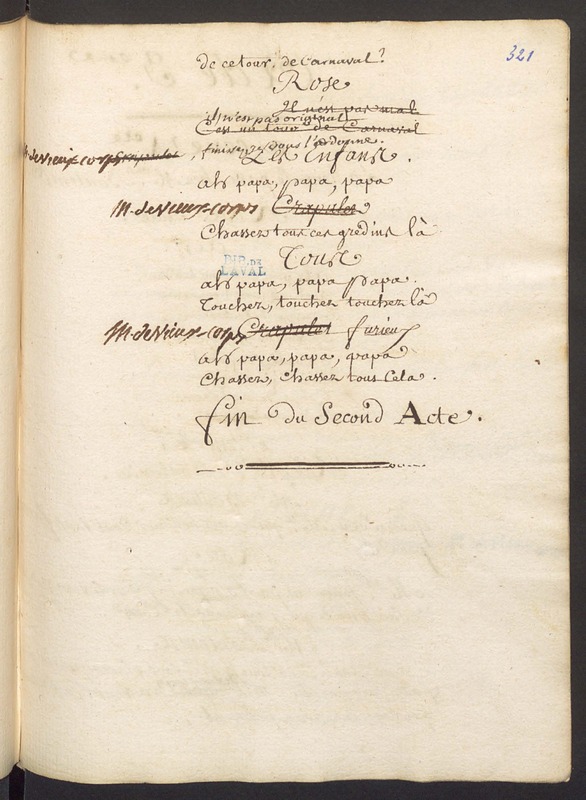 321
de ce tour, de Carnaval?
Rose
Il n'est pas mal
il n'est pas original
C'est un tour de Carnaval
M. de Vieux-corps Crapulos, finissez, je vous l'ordonne.
Les Enfans.
ah papa, papa, papa
M. de Vieux-corps Crapulos
Chassez tous ces gredins là
Tous
BIB. DE
LAVAL
ah papa, papa papa.
Touchez, touchez touchez là
M. de Vieux-corps Crapulos furieux
ah papa, papa, papa
Chassez, Chassez tous cela.
fin du Second Acte.